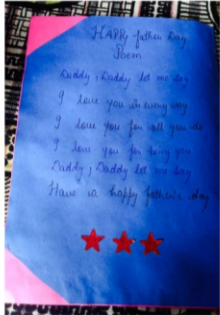 HAPPY father Day
Poem
Daddy, Daddy let me say
I love you in every way
I love you for all you do
I love you for being you
Daddy, Daddy let me say
Have a happy father's day